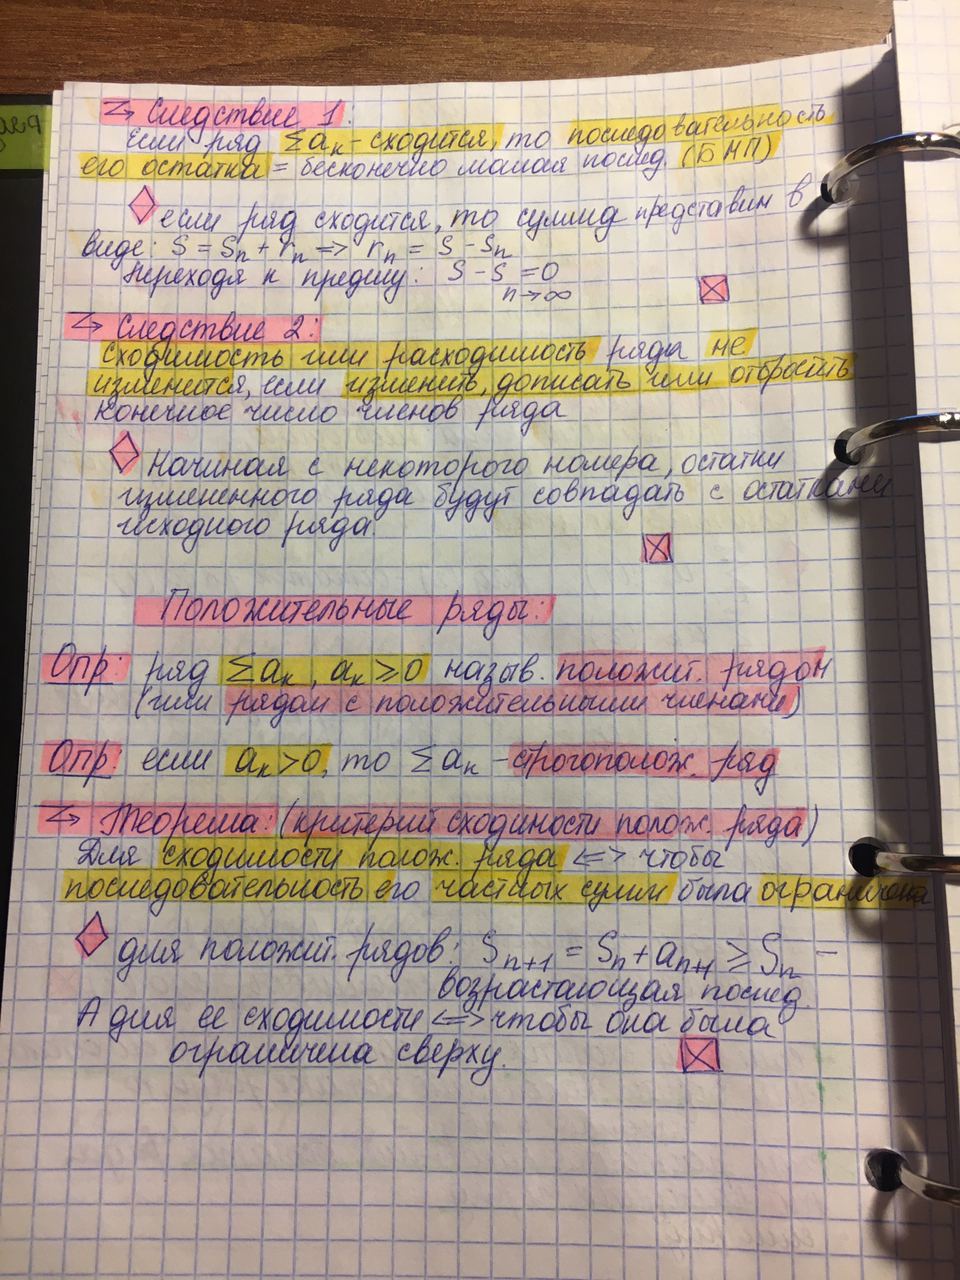 Следствие 1:
Если ряд Σaₖ - сходится, то последовательность
его остатка = бесконечно малая послед. (БМП)
если ряд сходится, то сумму представим в
виде: S = Sₙ + rₙ ⇒ rₙ = S - Sₙ
Переходя к пределу: S - S = 0
n→∞
Следствие 2:
сходимость или расходимость ряда не
изменится, если изменить, дописать или отбросить
конечное число членов ряда
Начиная с некоторого номера, остатки
измененного ряда будут совпадать с остатками
исходного ряда.
Положительные ряды:
Опр: ряд Σaₖ, aₖ ≥ 0 назыв. положит. рядом
(или рядом с положительными членами)
Опр: если aₖ > 0, то Σaₖ - строгополож. ряд
Теорема: (критерий сходимости полож. ряда)
Для сходимости полож. ряда <=> чтобы
последовательность его частных сумм была ограничена
для положит. рядов: Sₙ₊₁ = Sₙ + aₙ₊₁ ≥ Sₙ -
возрастающая послед.
А для ее сходимости <=> чтобы она была
ограничена сверху.